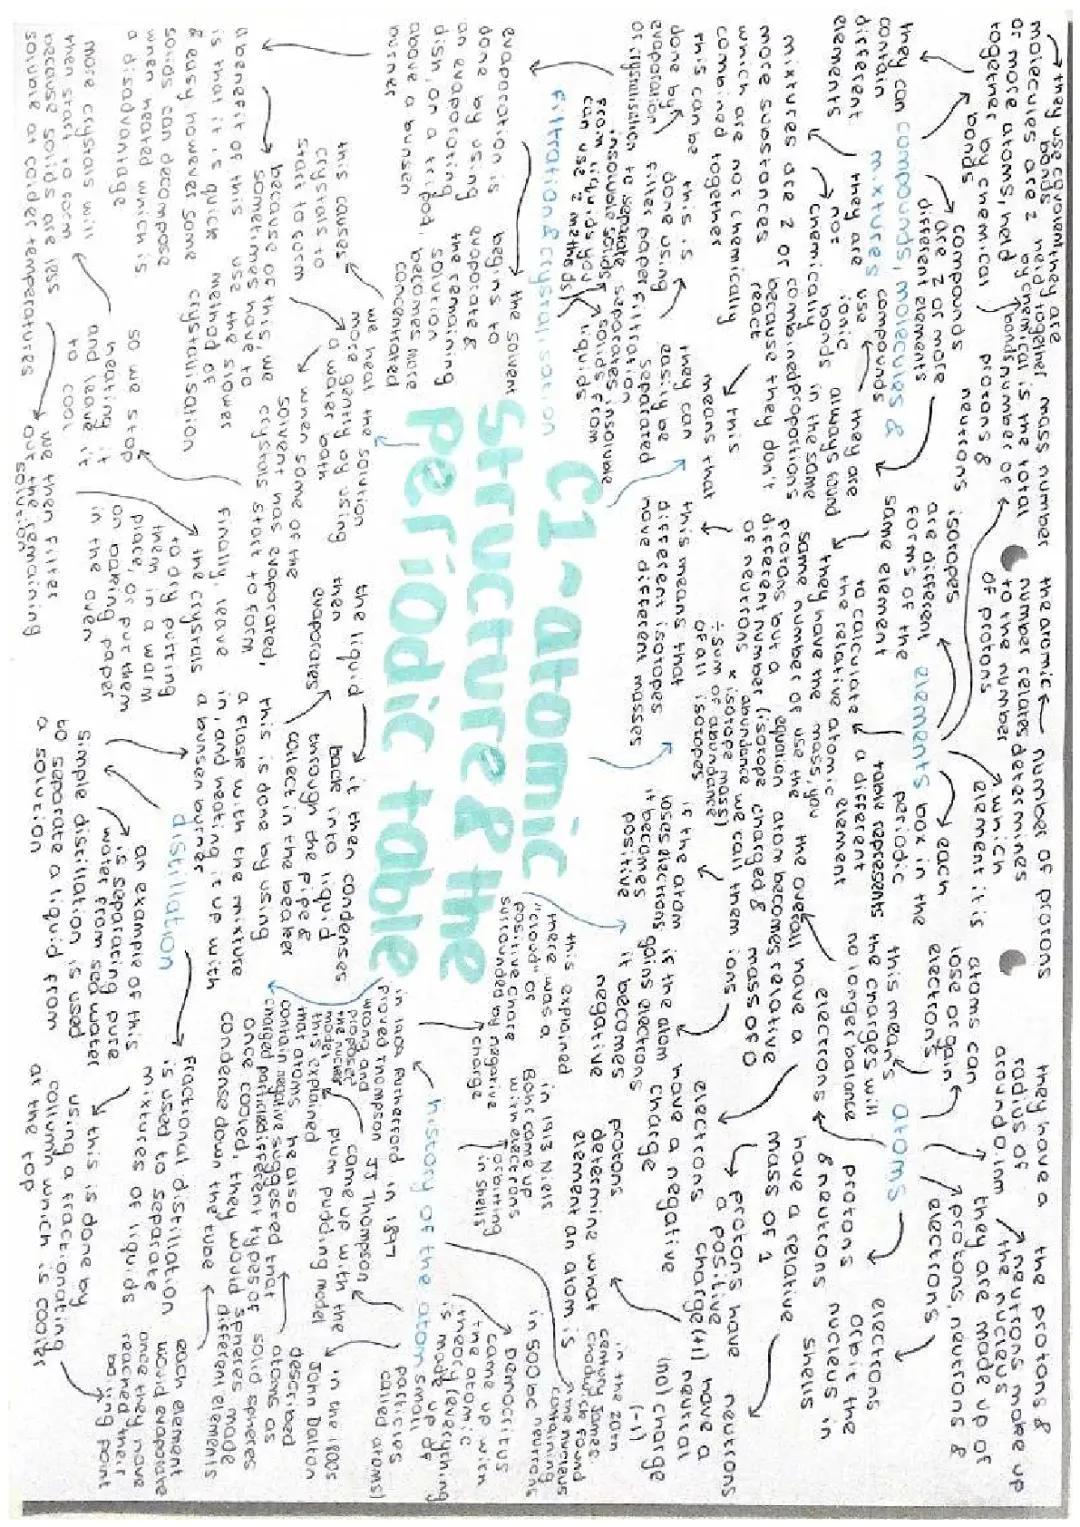 C1-atomic
structure & the
periodic table
compounds, molecules &
mixtures
they use
bonds
molecules are 2
or more atoms, held
together by chemical
bonds
compounds
are 2 or more
different elements
held together
by chemical
bonds
they can
contain
different
elements
mixtures are 2 or
more substances
which are not chemically
combined together
they are
not
chemically
combined
because they don't
react
compounds
use
ionic
bonds
they are
always found
in the same
propotions
this means that
they can
easily be
separated
this can be
done by
evaporation
or crystalisation
this is
done using
filter paper
filtration
separates insoluble
solids from
liquids
filtration & crystalisation
to separate
insoluble solids
from liquids you
can use 2 methods
evaporation is
done by using
an evaporating
dish, on a tripod
above a bunsen
burner
the solvent
begins to
evaporate &
the remaining
solution
becomes more
concentrated
this causes
crystals to
start to form
a benefit of this
is that it is quick
& easy however some
solids can decompose
when heated which is
a disadvantage
because of this we
sometimes have to
use the slower
method of
crystalisation
we heat the solution
more gently by using
a water bath
when some of the
solvent has evaporated,
crystals start to form
so we stop
heating
it
and leave it
to cool
more crystals will
then start to form
because solids are less
soluble at colder temperatures
we then filter
out the remaining
solution
finally leave
the crystals
to dry putting
them in a warm
place, or put them
on baking paper
in the oven
elements
each
box in the
periodic
table represents
a different
element
mass number
is the total
number of
protons &
neutrons
the atomic
number relates
to the number
of protons
number of protons
determines
which
element it is
isotopes
are different
forms of the
same element
they have the
same number of
protons but a
different number
of neutrons
this means that
different isotopes
have different masses
to calculate
the relative atomic
mass, you
use the
equation
(isotope
abundance
x isotope mass)
÷ sum of abundance
of all isotopes
atoms
they have a
radius of
around 0.1nm
they are made up of
protons, neutrons &
electrons
the protons &
neutrons make up
the nucleus
electrons
orbit
the
nucleus in
shells
protons
& neutrons
have a relative
mass of 1
electrons
have a
mass of 0
protons have
a positive
charge (+1)
neutrons
have a
neutral
(0) charge
electrons
have a negative
charge
(-1)
protons
determine what
element an atom is
atoms can
lose or gain
electrons
this means
the charges will
no longer balance
the overall
atom becomes
charged &
we call them
ions
if the atom
loses electrons
it becomes
positive
if the atom
gains electrons
it becomes
negative
history of the atom
in 500 bc
Democritus
came up with
the atomic
theory (everything
is made up of
small
particles
called atoms)
in the 1800s
John Dalton
described
atoms as
solid spheres
different types of
spheres made
different elements
in 1897
JJ Thompson
came up with the
plum pudding model
this explained
that atoms
contain negative
charged particles
this explained
there was a
"cloud" of
positive charge
in 1909 Rutherford
proved thompson
wrong and
proposed
the nuclear
model
he also
suggested that
surrounded by negative
charge
in 1913 Niels
Bohr come up
with electrons
orbiting
in shells
in the 20th
century James
Chadwick found
the nucleus
containing
neutrons
distillation
simple distillation is used
to separate a liquid from
a solution
an example of this
is separating pure
water from sea water
this is done by using
a flask with the mixture
in, and heating it up with
a bunsen burner
the liquid
then
evaporates
it then condenses
back into liquid
through the pipe &
collect in the beaker
fractional distillation
is used to separate
mixtures of liquids
this is done by
using a fractionating
collumn which is cooler
at the top
each element
would evaporate
once they have
reached their
boiling point
once cooled, they would
condense down the tube